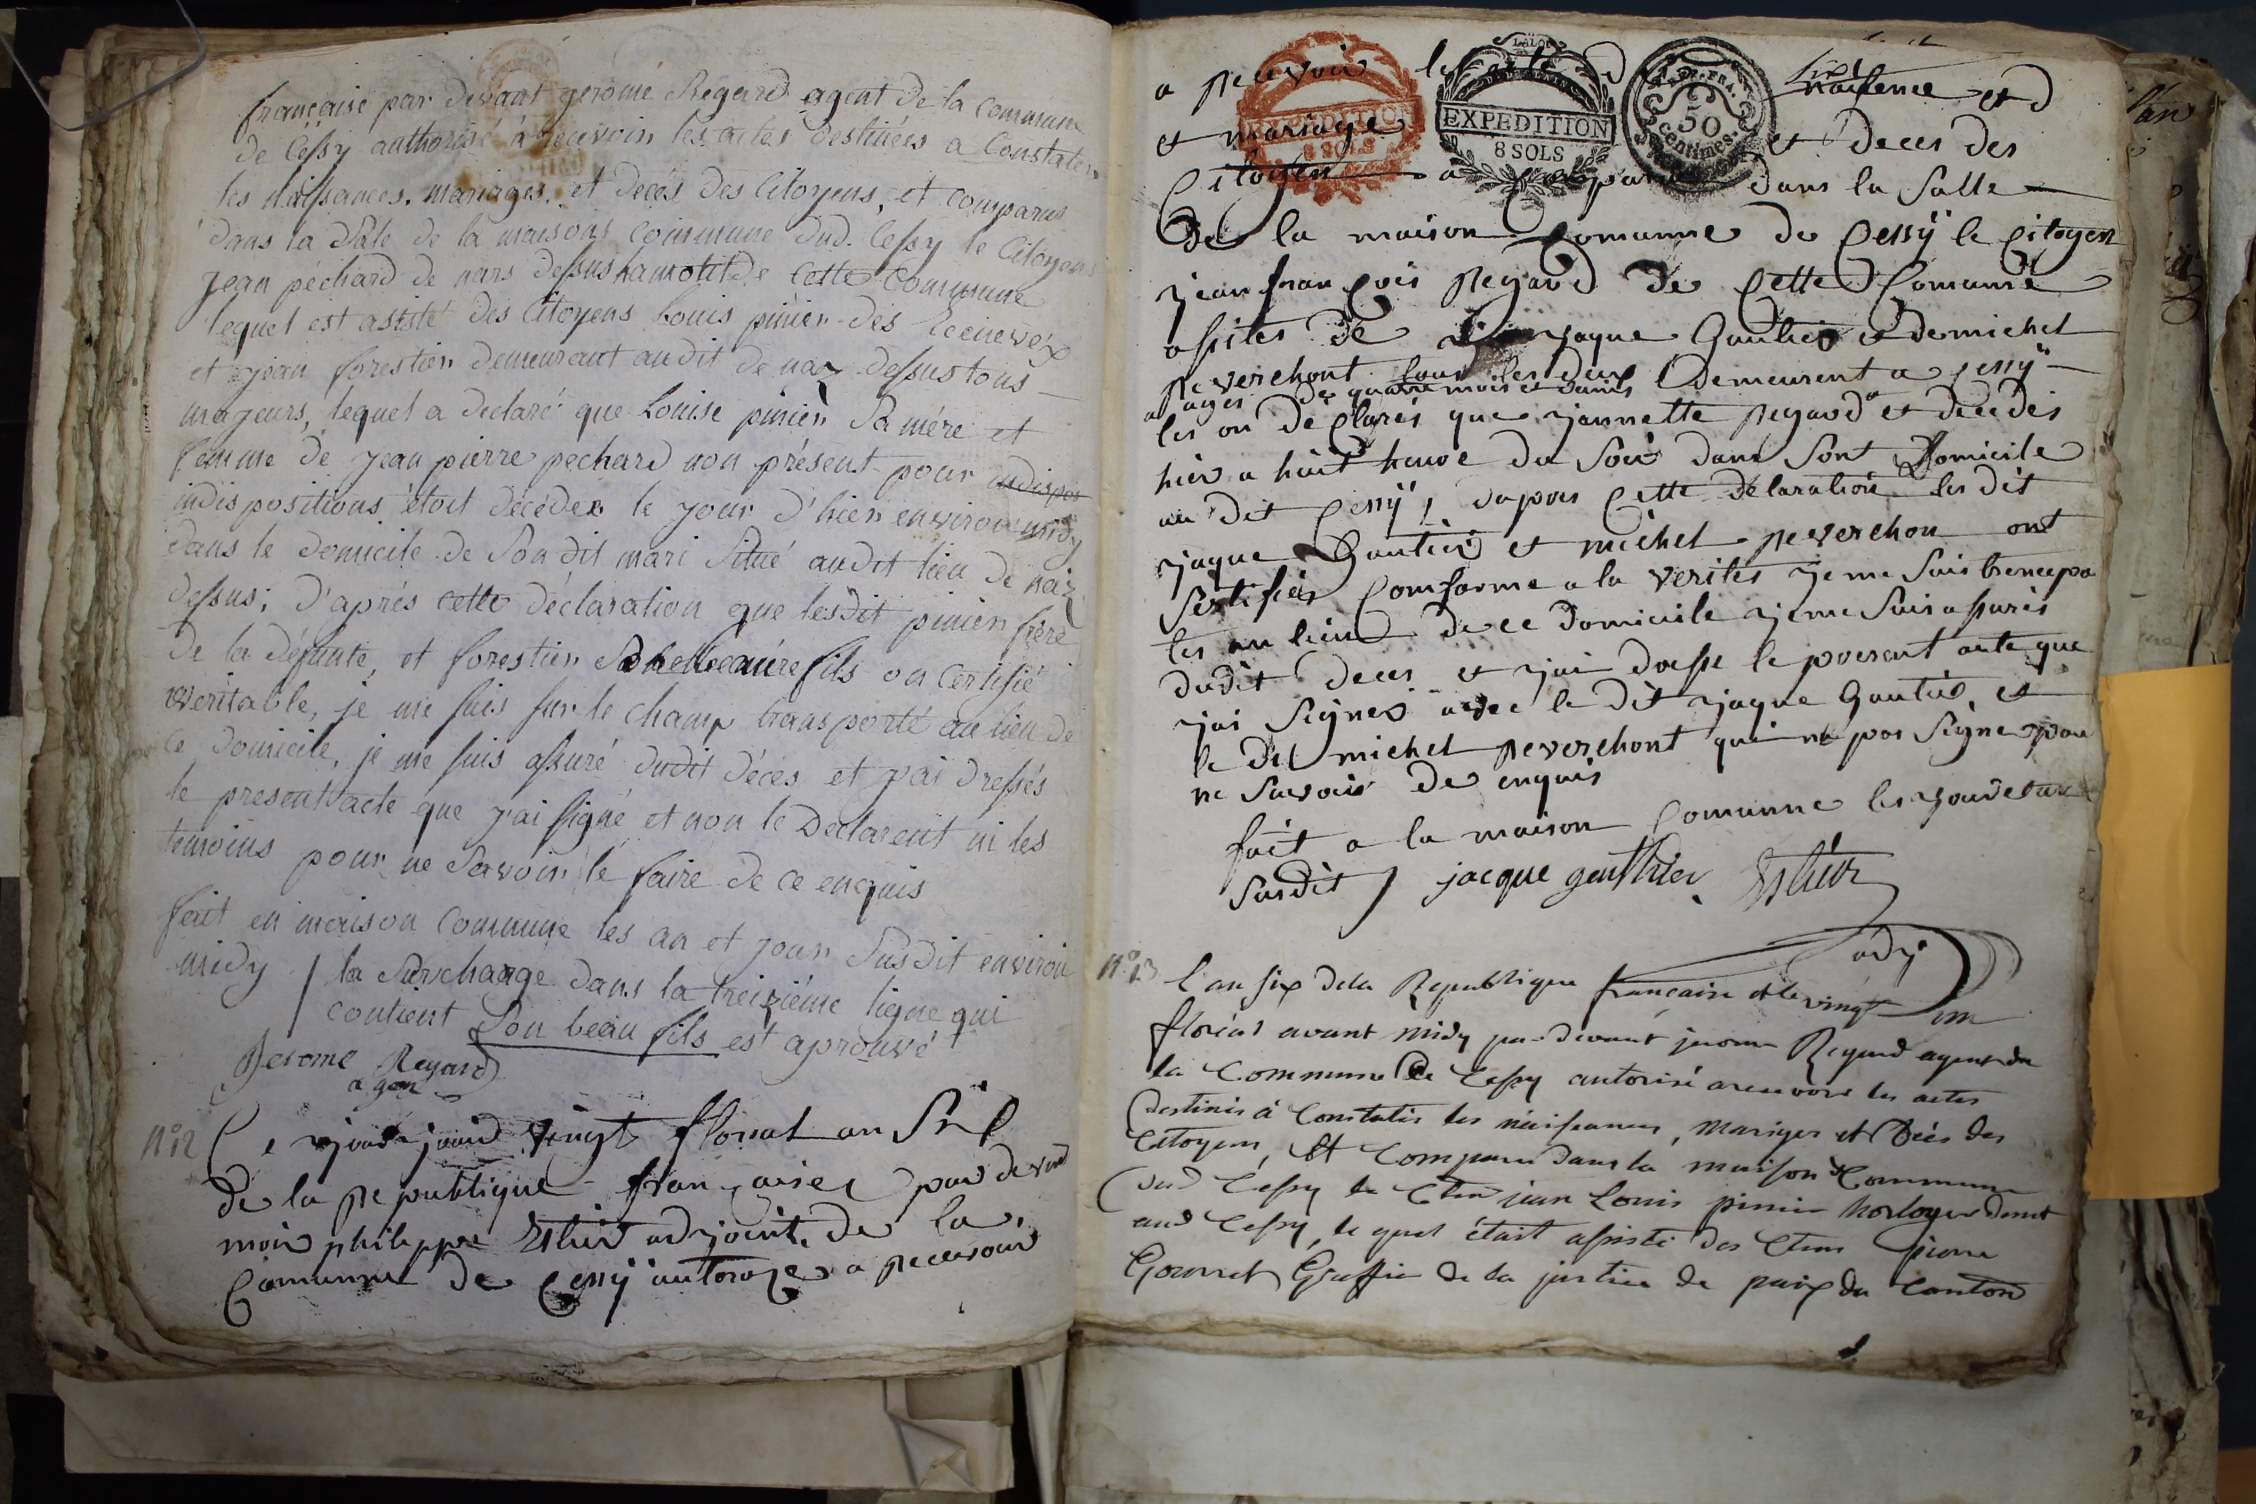 française par devant gerome Regard agent de la commune
de Cessy authorisé à recevoir les actes destinées a Constater
les Naissances, mariages, et decès des Citoyens, et comparus
dans la Sale de la maison commune dud. Cessy le Citoyen
jean péchard de nars dessus hamot de cette Commune
lequel est assisté des Citoyens Louis pinier des
et jean forestier demeurant audit de naz dessus tous
majeurs, lequel a declaré que Louise pinier Sa mére et
femme de jean pierre pechard non présent pour
indispositions étoit décédée le jour d'hier environ midy
dans le domicile de Son dit mari Situé audit lieu de naz
dessus; d'aprés cette déclaration que lesdit pinier frère
de la défunte, et forestier Son beau fils on certifié
veritable, je me suis sur le champ transporté au lieu de
ce domicile, je me suis assuré dudit décès et j'ai dressés
le present acte que j'ai signé et non le Declarent ni les
temoins pour ne Savoir le faire de ce enquis
fait en maison commune les an et jour Susdit environ
midy / la Surcharge dans la treizième ligne qui
contient Son beau fils est aprouvé
Jerome Regard
agen
N°12 Ce jourdjourd vingt floreal an Six
de la Republique françaises par devend
moi philippe adjoint de la
Comunne de Cessÿ autorize a recevoir
a recevoir les acte d naisence et d
et mariage et deces des
Citoyen a Comparu dans la Salle
de la maison Comunne de Cessÿ le Citoyen
jean françois Regard de Cette Comunne
assites de jaque Gautier et de michel
Reverchont tous les deux demeurent a Cessÿ
ages de quatre mois et demis
les on déClarés que jannette Regard et décédés
hier a huit heure du Soir dans Sont Domicile
au dit Cessÿ, dapres Cette délaration les dit
jaque Gautier et michel Reverchon ont
Sertifiés Comforme a la verités je me Suis trencepor
tes au lieu de ce Domicile je me Suis assurés
dudit deces et jai dresse le present acte que
jai Signer avec le dit jaque Gautier, et
le dit michel Reverchont qui na pas Signe pour
ne Savoir de enquis
fait a la maison Comunne les jour et an
Susdit / jacque gauthier
adj
N°13 l'an six de la Republique francaise et le vingt un
floréal avant midy par devant jerome Regard agent de
la Commune de Cessy autorisé a recevoir les actes
destinés à Constater les naissances, mariages et Décès des
Citoyens, Et Comparu dans la maison Commune
dud Cessy le Cten jean Louis pinier horloger demt
aud Cessy, le quel était assisté des Ctens pierre
Gournet Greffier de la justice de paix du Canton
EXPEDITION
8 SOLS
EXPEDITION
8 SOLS
50
centimes